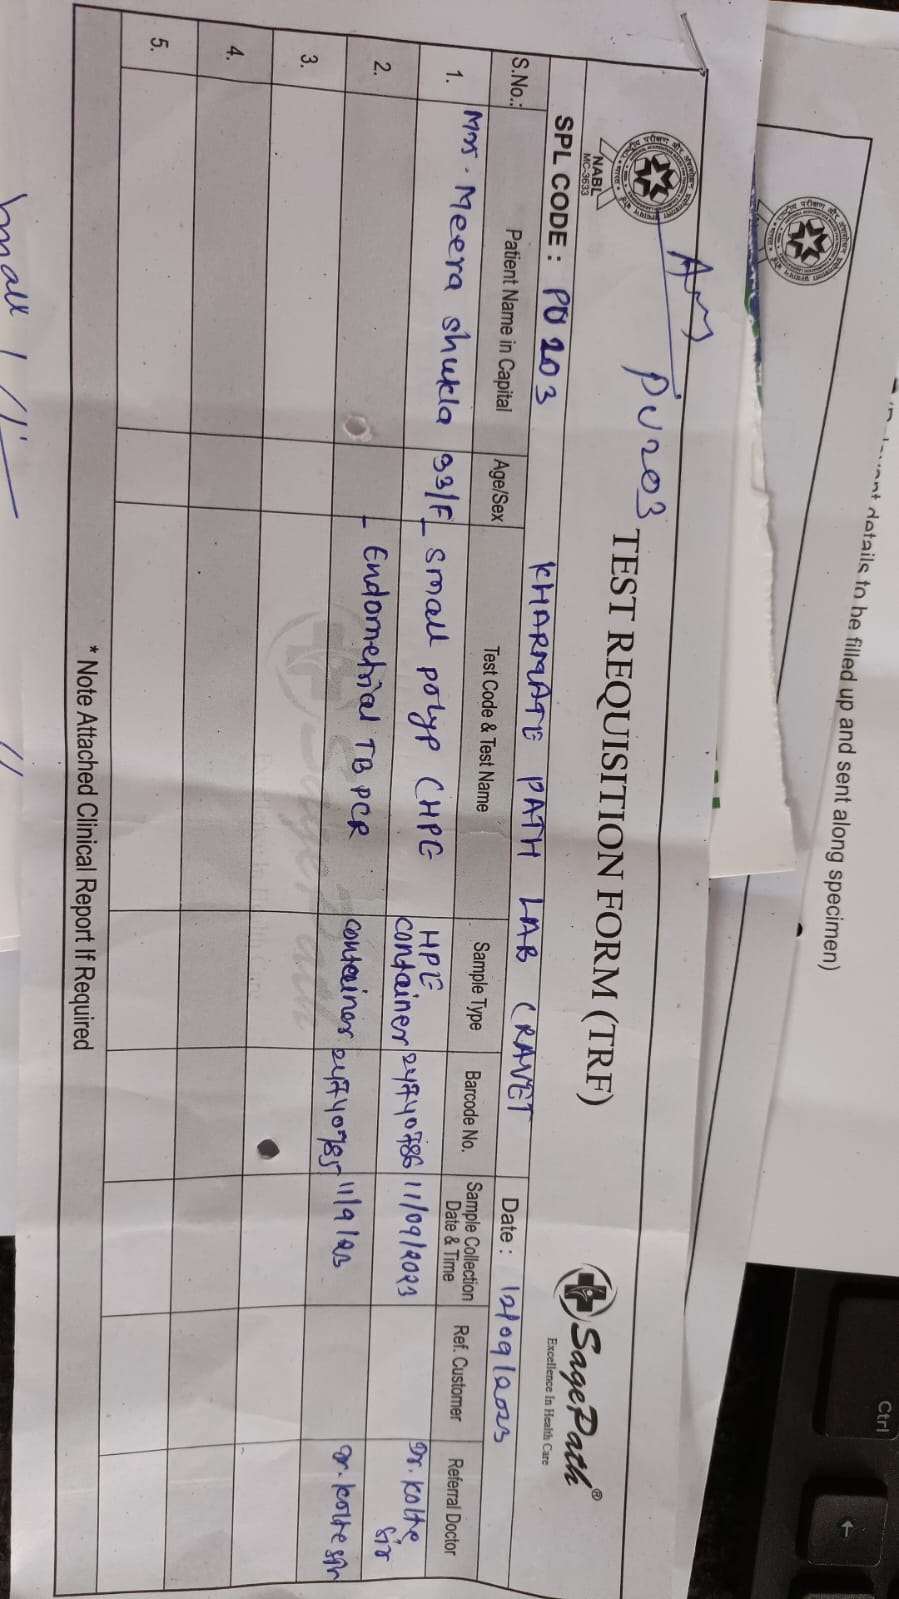 ...details to be filled up and sent along specimen)
Arms
PU203
TEST REQUISITION FORM (TRF)
NABL
MC-3633
SagePath®
Excellence In Health Care
SPL CODE : PU 203 KHARMATE PATH LAB (RAVET Date : 12/09/2023
S.No.: Patient Name in Capital Age/Sex Test Code & Test Name Sample Type Barcode No. Sample Collection Date & Time Ref. Customer Referral Doctor
1. Mrs. Meera shukla 33/F - small polyp (HPE HPE container 24740786 11/09/2023 Dr. Kolte sir
2. - Endometrial TB PCR container 24740785 11/9/23 Dr. Kolte sir
3.
4.
5.
* Note Attached Clinical Report If Required
Ctrl